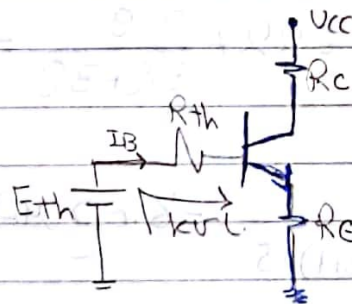 VCC
RC
Rth
IB
Eth
kvl
RE